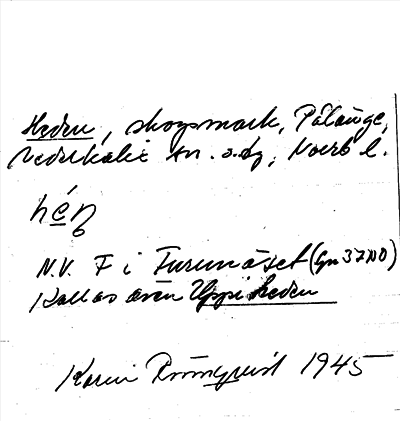 Heden, skogsmark, Pålänge,
Nederkalix sn. o. dg, Norrb l.
hén
N.V. F i Furunäset (Gn 37 NO)
Kallas även Uppi heden
Karin Rönnqvist 1945